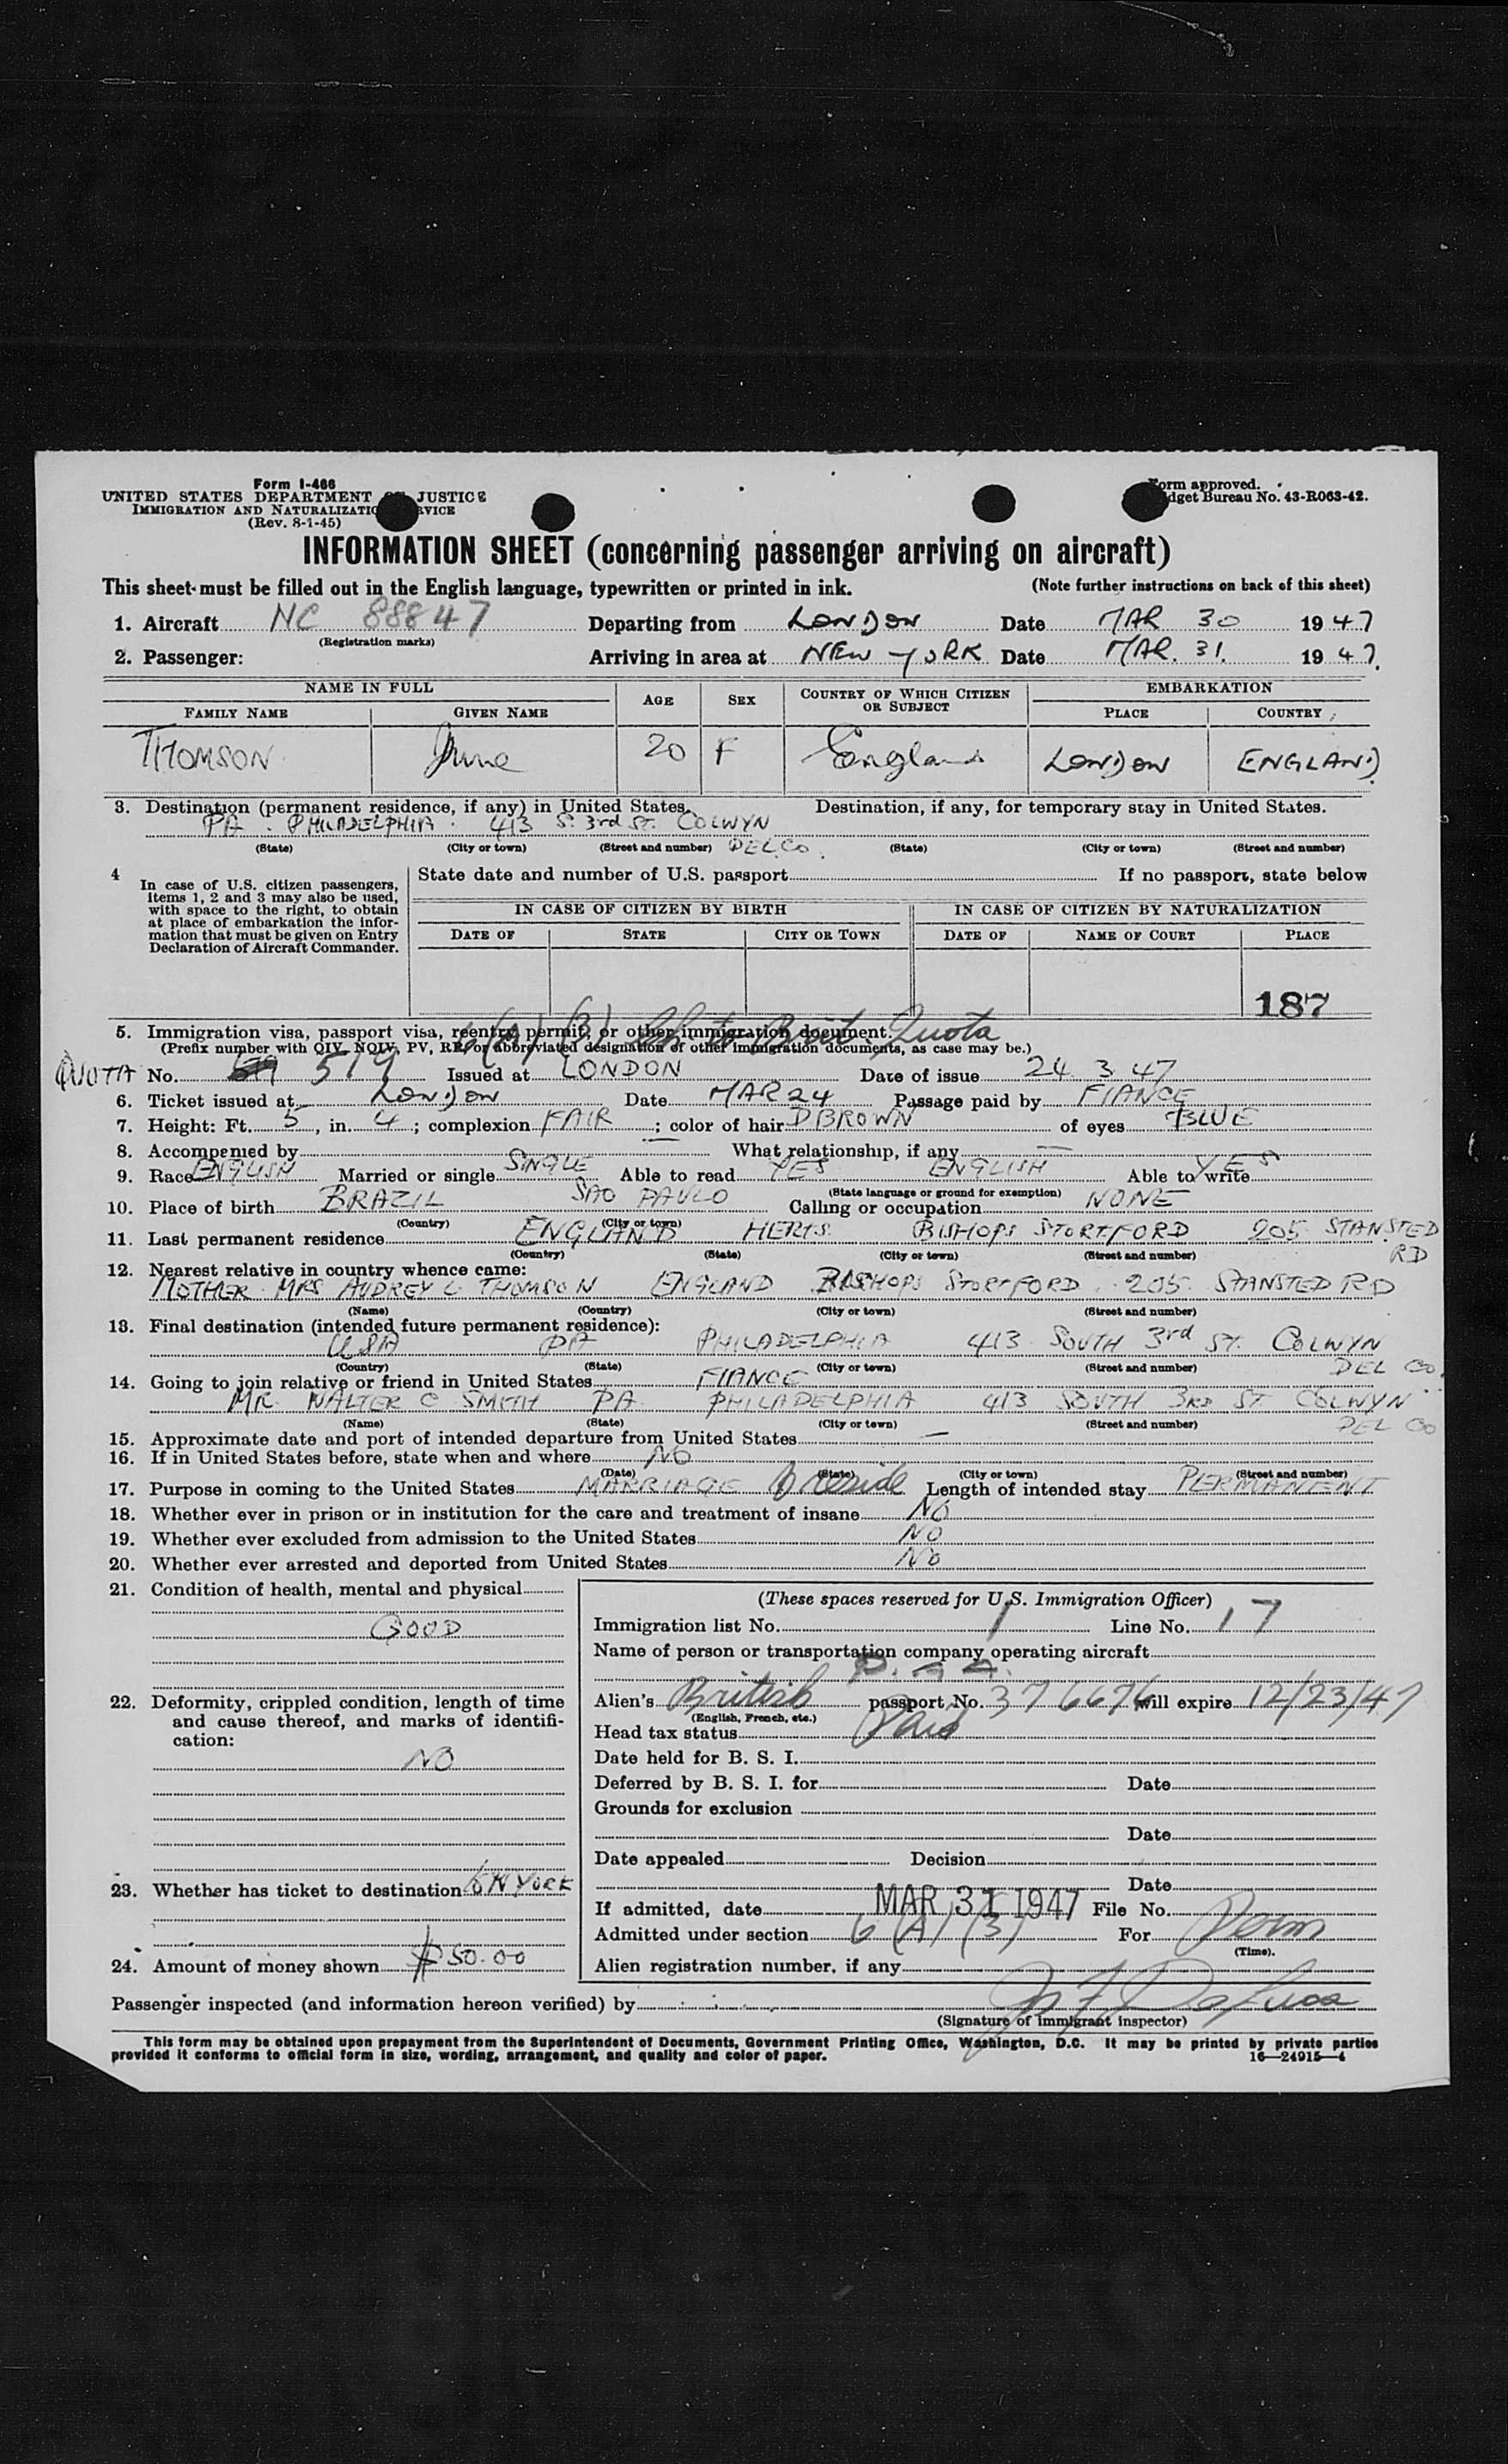 Form I-466
UNITED STATES DEPARTMENT JUSTICE
IMMIGRATION AND
(Rev. 8-1-45)
Form approved.
Budget Bureau No. 43-R063-42.
INFORMATION SHEET (concerning passenger arriving on aircraft)
This sheet must be filled out in the English language, typewritten or printed in ink. (Note further instructions on back of this sheet)
1. Aircraft NC 88847 Departing from LONDON Date MAR 30 1947
(Registration marks)
2. Passenger: Arriving in area at NEW YORK Date MAR. 31. 1947.
NAME IN FULL AGE SEX COUNTRY OF WHICH CITIZEN OR SUBJECT EMBARKATION
FAMILY NAME GIVEN NAME PLACE COUNTRY
THOMSON June 20 F England LONDON ENGLAND
3. Destination (permanent residence, if any) in United States. Destination, if any, for temporary stay in United States.
PA. PHILADELPHIA. 413 S. 3rd ST. COLWYN
(State) (City or town) (Street and number) DEL CO. (State) (City or town) (Street and number)
4 In case of U.S. citizen passengers, items 1, 2 and 3 may also be used, with space to the right, to obtain at place of embarkation the information that must be given on Entry Declaration of Aircraft Commander.
State date and number of U.S. passport If no passport, state below
IN CASE OF CITIZEN BY BIRTH IN CASE OF CITIZEN BY NATURALIZATION
DATE OF STATE CITY OR TOWN DATE OF NAME OF COURT PLACE
187
5. Immigration visa, passport visa, reentry permit, or other immigration document
6(A)(3) to Brit. Quota
(Prefix number with QIV, NQIV, PV, RP, or abbreviated designation of other immigration documents, as case may be.)
QUOTA No. 519 Issued at LONDON Date of issue 24 3 47
6. Ticket issued at LONDON Date MAR 24 Passage paid by FIANCE
7. Height: Ft. 5, in. 4; complexion FAIR; color of hair D BROWN of eyes BLUE
8. Accompenied by What relationship, if any —
9. Race ENGLISH Married or single SINGLE Able to read YES ENGLISH Able to write YES
(State language or ground for exemption)
10. Place of birth BRAZIL SAO PAULO Calling or occupation NONE
(Country) (City or town)
11. Last permanent residence ENGLAND HERTS. BISHOPS STORTFORD 205 STANSTED RD
(Country) (State) (City or town) (Street and number)
12. Nearest relative in country whence came:
MOTHER MRS AUDREY C. THOMSON ENGLAND BISHOPS STORTFORD. 205 STANSTED RD
(Name) (Country) (City or town) (Street and number)
13. Final destination (intended future permanent residence):
USA PA PHILADELPHIA 413 SOUTH 3rd ST. COLWYN
(Country) (State) (City or town) (Street and number) DEL CO.
14. Going to join relative or friend in United States FIANCE
MR. WALTER C SMITH PA PHILADELPHIA 413 SOUTH 3RD ST COLWYN
(Name) (State) (City or town) (Street and number) DEL CO
15. Approximate date and port of intended departure from United States —
16. If in United States before, state when and where NO
(Date) (State) (City or town) (Street and number)
17. Purpose in coming to the United States MARRIAGE & reside Length of intended stay PERMANTENT
18. Whether ever in prison or in institution for the care and treatment of insane NO
19. Whether ever excluded from admission to the United States NO
20. Whether ever arrested and deported from United States NO
21. Condition of health, mental and physical
GOOD
22. Deformity, crippled condition, length of time and cause thereof, and marks of identification:
NO
23. Whether has ticket to destination N YORK
24. Amount of money shown $50.00
(These spaces reserved for U.S. Immigration Officer)
Immigration list No. 1 Line No. 17
Name of person or transportation company operating aircraft
P. A. A.
Alien's British passport No. 376676 will expire 12/23/47
(English, French, etc.)
Head tax status Paid
Date held for B. S. I.
Deferred by B. S. I. for Date
Grounds for exclusion
Date
Date appealed Decision
Date
If admitted, date MAR 31 1947 File No.
Admitted under section 6(A)(3) For Perm
(Time).
Alien registration number, if any
Passenger inspected (and information hereon verified) by
(Signature of immigrant inspector)
This form may be obtained upon prepayment from the Superintendent of Documents, Government Printing Office, Washington, D.C. It may be printed by private parties
provided it conforms to official form in size, wording, arrangement, and quality and color of paper. 16—24915-4